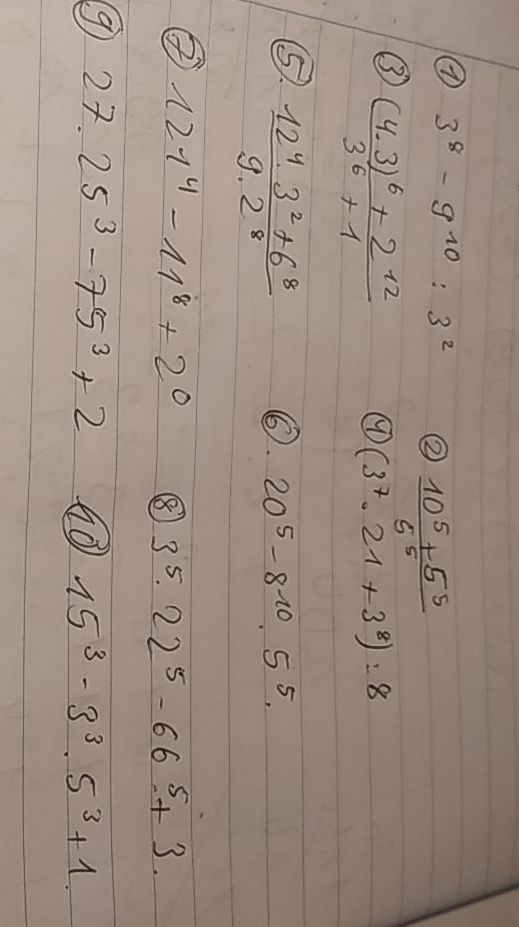 ① 3⁸ - 9¹⁰ : 3² ② 10⁵ + 5⁵ / 5⁵
③ (4.3)⁶ + 2¹² / 3⁶ + 1 ④ (3⁷ . 21 + 3⁸) : 8
⑤. 12⁴. 3² + 6⁸ / 9. 2⁸ ⑥. 20⁵ - 8¹⁰. 5⁵.
⑦ 121⁴ - 11⁸ + 2⁰ ⑧ 3⁵. 22⁵ - 66⁵ + 3.
⑨ 27. 25³ - 75³ + 2 ⑩ 15³ - 3³. 5³ + 1.